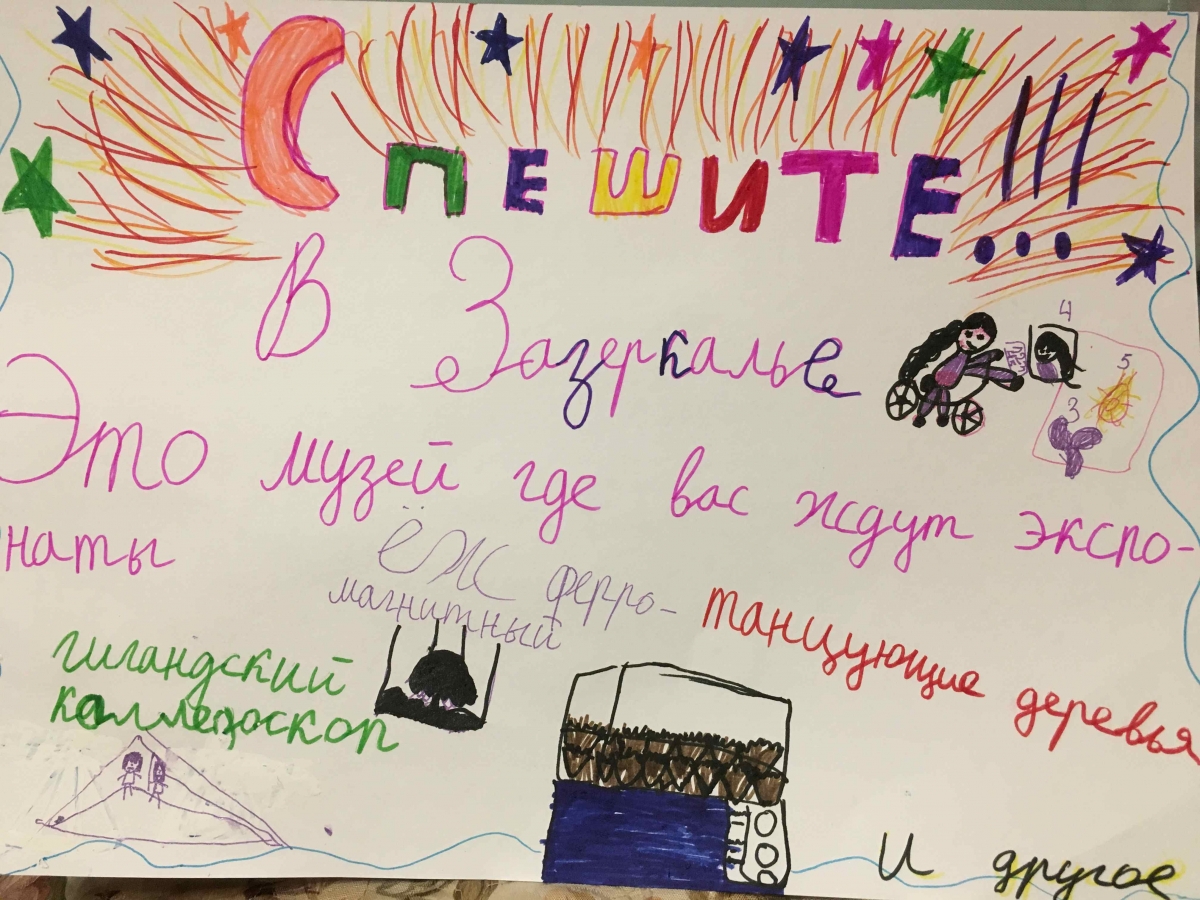 Спешите!!!
В Зазеркалье
4
5
3
Это музей где вас ждут экспо-
наты
ёж ферро-
магнитный
танцующие деревья
гигандский
коллейдоскоп
И другое